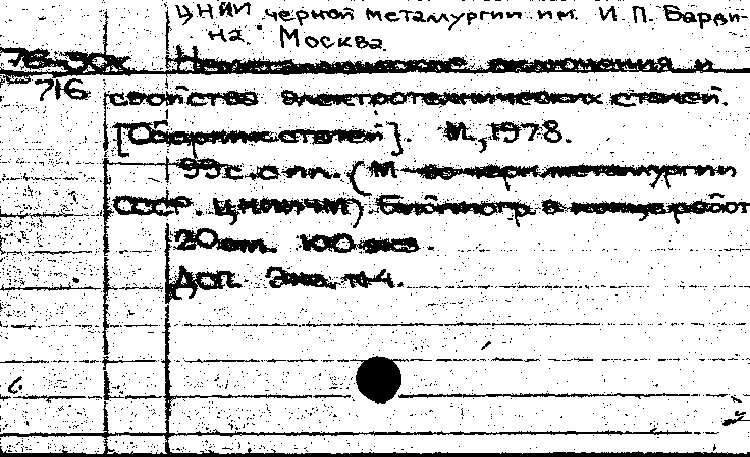 ЦНИИ черной металлургии им. И.П. Барди-
на. Москва.
78-30к Неметаллические включения и
716 свойства электротехнических сталей.
[Сборник статей]. М., 1978.
99с. с ил. (М-во черн. металлургии
СССР. ЦНИИЧМ). Библиогр. в конце работ
20см. 100 экз.
Доп. Экз. №4.